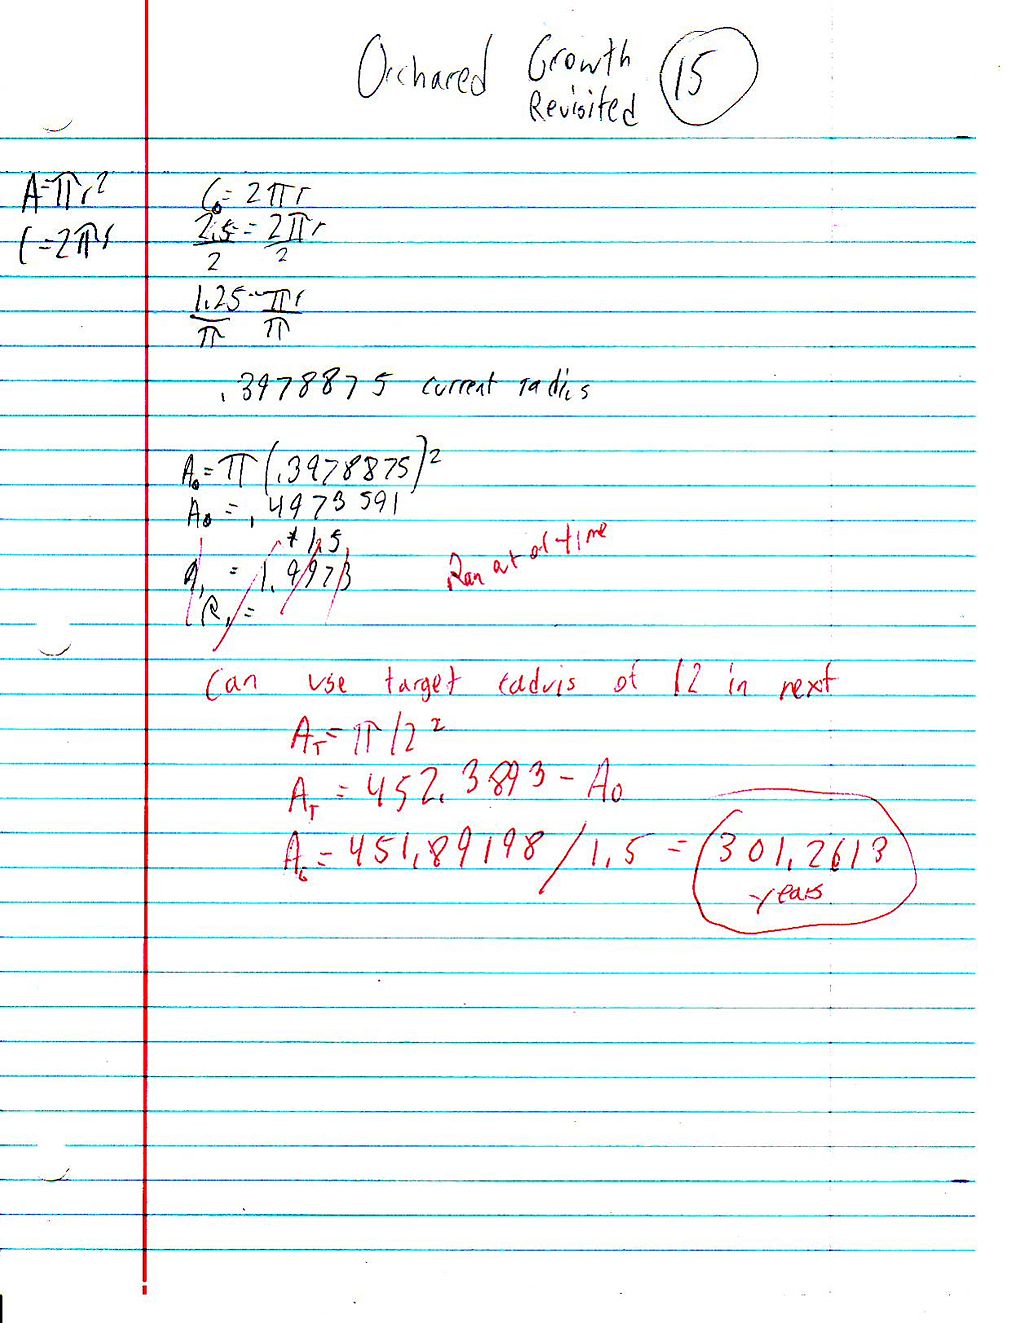 Orchared Growth 15
Revisited
A=πr²
C=2πr
C₀=2πr
2.5=2πr
2 2
1.25=πr
π π
.3978875 current radius
A₀=π(.3978875)²
A₀=.4973591
+1.5
A₁=1.9973
R₁=
Ran out of time
Can use target radius of 12 in next
A_T=π12²
A_T=452.3893-A₀
=451.89198/1.5=301.2613
years